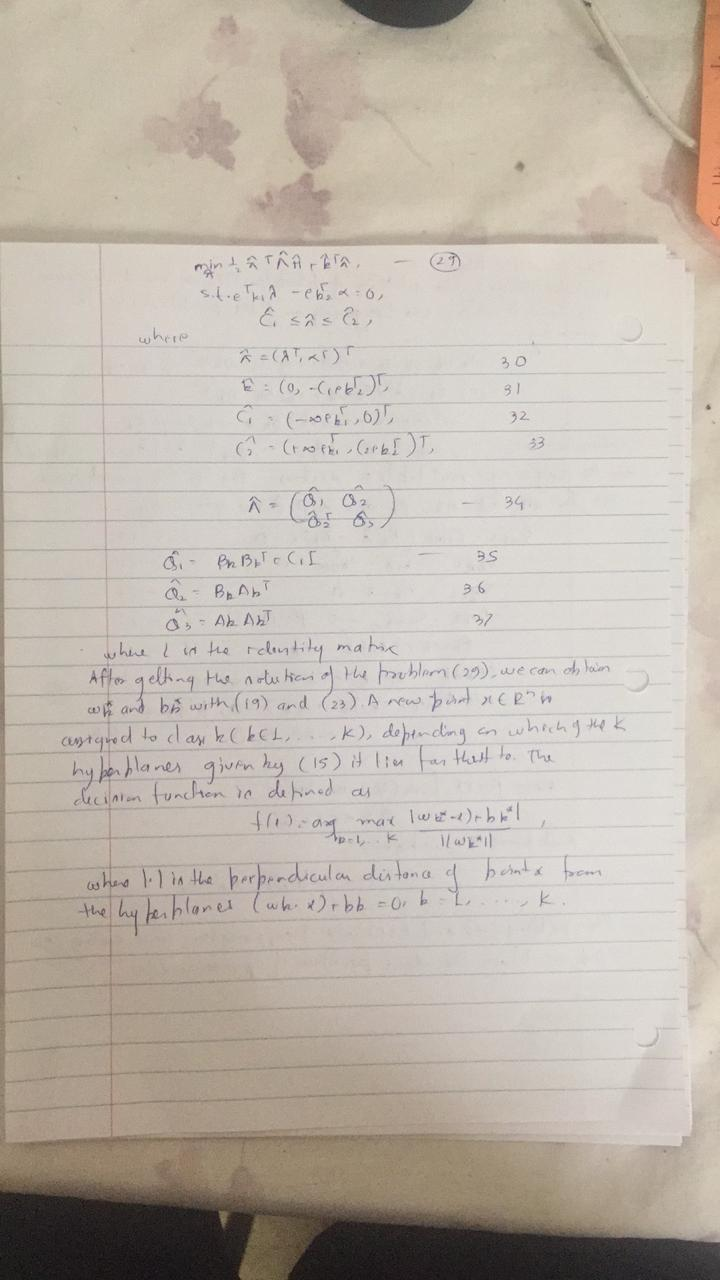 min 1/2 π̂ᵀ Λ̂ π̂ + k̂ᵀ π̂, — (29)
s.t. eᵀk₁ λ - eᵀk₂ α = 0,
Ĉ₁ ≤ π̂ ≤ Ĉ₂,
where
π̂ = (λᵀ, αᵀ)ᵀ 30
k̂ = (0, -C₁eᵀk₂)ᵀ, 31
Ĉ₁ = (-∞eᵀk₁, 0)ᵀ, 32
Ĉ₂ = (+∞eᵀk₁, C₂eᵀk₂)ᵀ, 33
Λ̂ = ( Q̂₁ Q̂₂ — 34
Q̂₂ᵀ Q̂₃ )
Q̂₁ = BkBkᵀ + C₁I — 35
Q̂₂ = BkAkᵀ 36
Q̂₃ = AkAkᵀ 37
where I in the identity matrix
After getting the solution of the problem (29), we can obtain
wk* and bk* with (19) and (23). A new point x ∈ Rⁿ is
assigned to class k (k ∈ 1, ..., K), depending on which of the K
hyperplanes given by (15) it lies farthest to. The
decision function is defined as
f(x) = arg max k=1,..K |wk*·x)+bk*| / ||wk*||,
where |·| is the perpendicular distance of point x from
the hyperplanes (wk·x)+bk = 0, k = 1, ...., K.